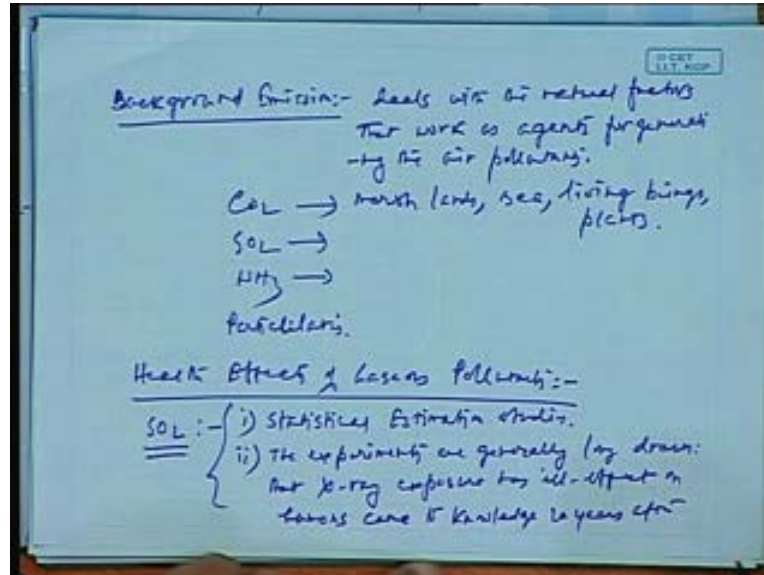 © CET
I.I.T. KGP
Background Emission:- deals with the natural factors
that work as agents for generati
-ng the air pollutants.
CO2 → marsh lands, sea, living beings,
plants.
SO2 →
NH3 →
Particulates.
Health Effects of Gaseous Pollutants:-
SO2 :- i) Statistical Estimation studies.
ii) The experiments are generally long drawn:
that X-ray exposure has ill-effect on
came to knowledge 20 years after